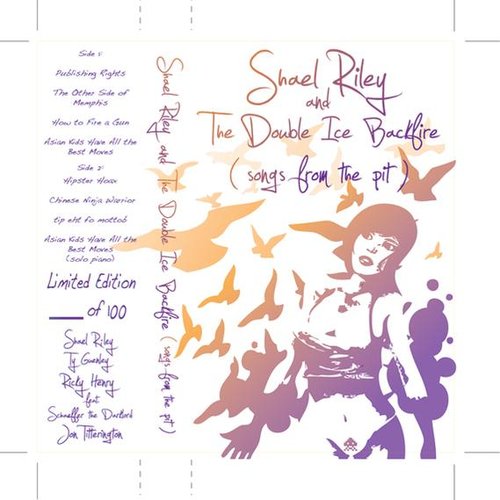 Side 1:
Publishing Rights
The Other Side of
Memphis
How to Fire a Gun
Asian Kids Have All the
Best Moves
Side 2:
Hipster Hoax
Chinese Ninja Warrior
tip eht fo mottob
Asian Kids Have All the
Best Moves
(solo piano)
Limited Edition
___ of 100
Shael Riley
Ty Guenley
Ricky Henry
feat
Schaeffer the Darklord
Jon Titterington
Shael Riley and The Double Ice Backfire (songs from the pit)
Shael Riley
and
The Double Ice Backfire
(songs from the pit)